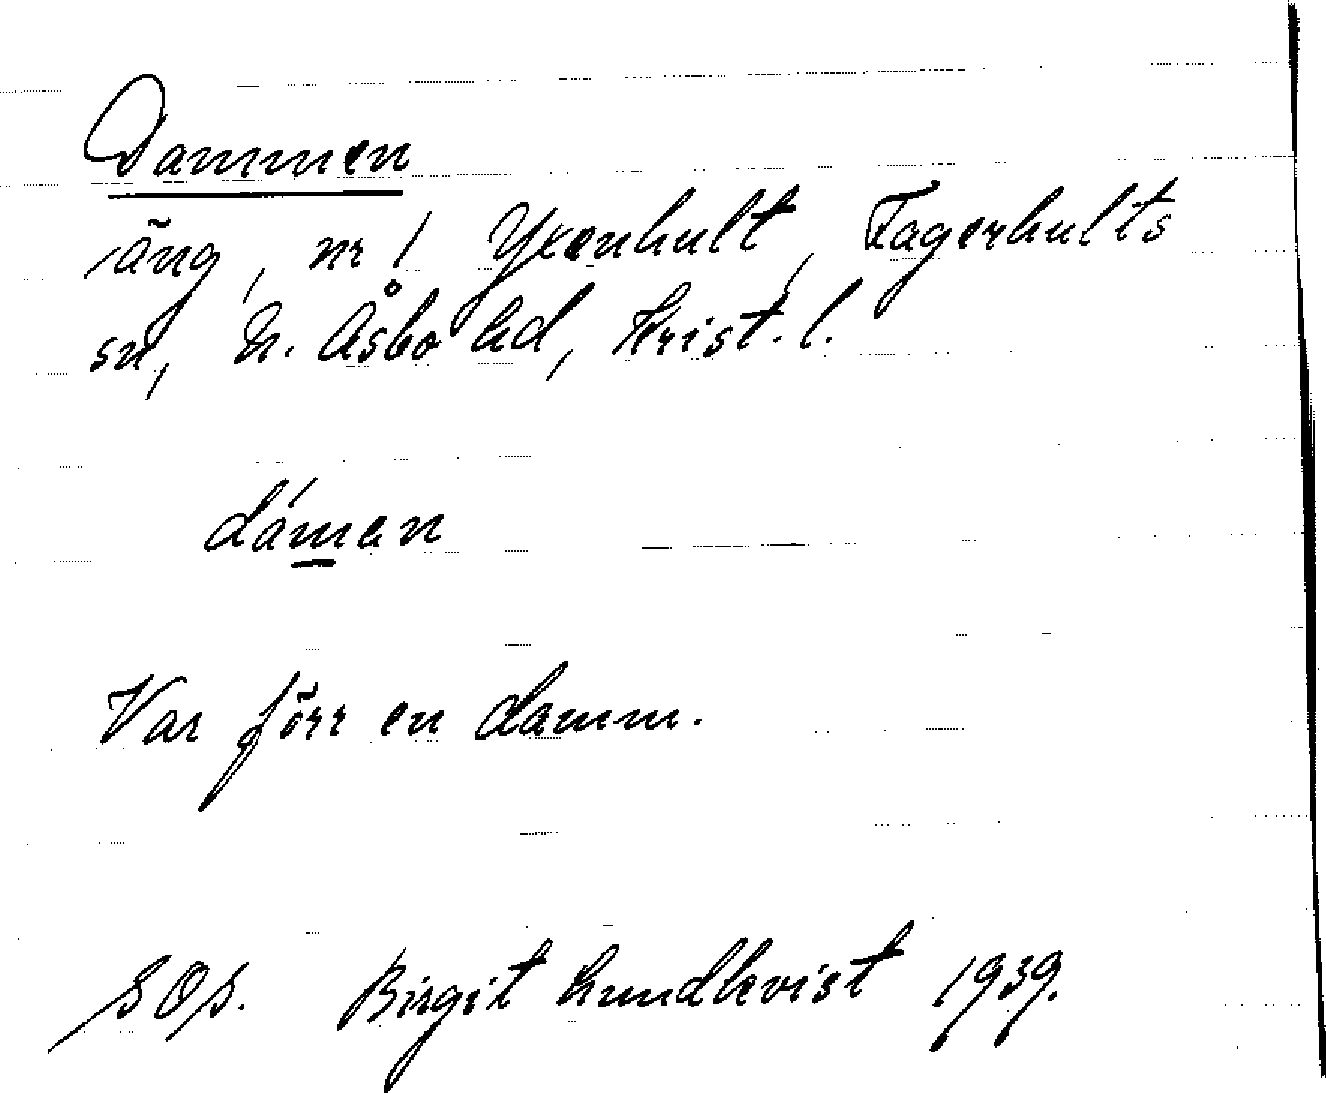 Dammen
äng, nr 1 Yxenhult, Fagerhults
sn, N. Åsbo hd, Krist. l.
dámen
Var förr en damm.
SOS. Birgit Lundkvist 1939.